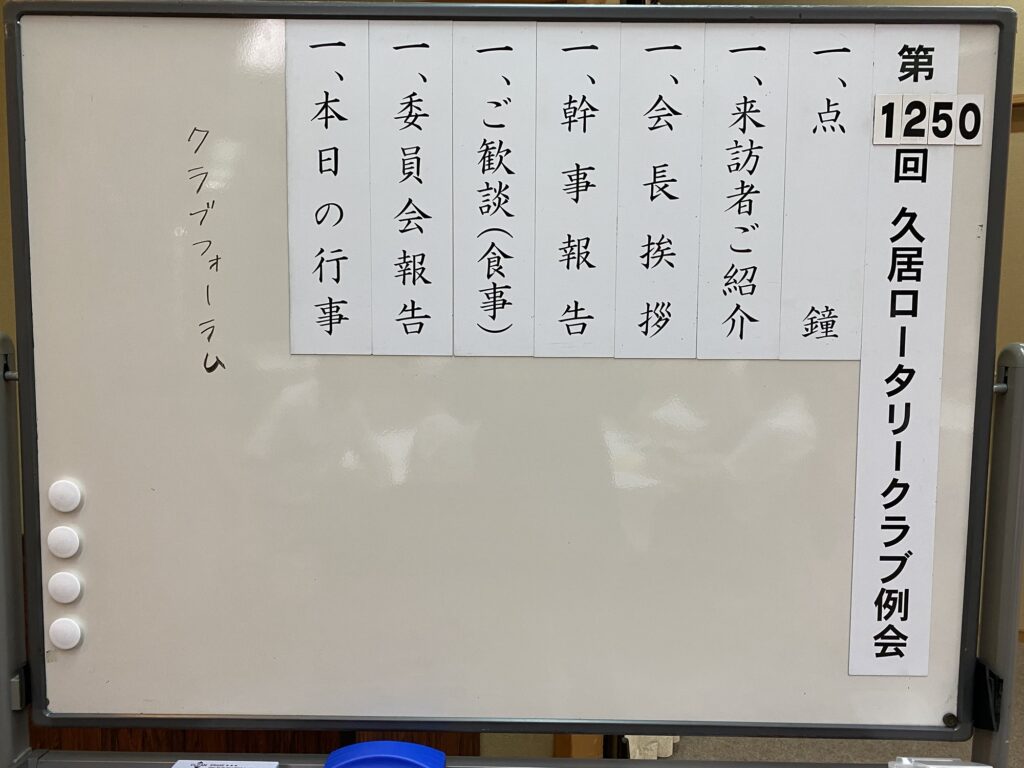 第1250回 久居ロータリークラブ例会
一、点鐘
一、来訪者ご紹介
一、会長挨拶
一、幹事報告
一、ご歓談(食事)
一、委員会報告
一、本日の行事
クラブフォーラム